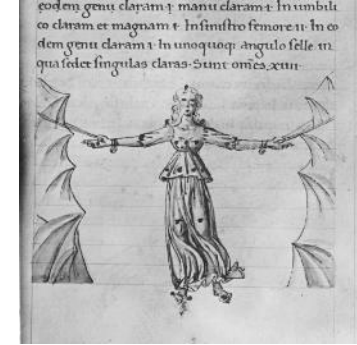 eodem genu claram·I· manu claram·I· In umbili
co claram et magnam I· In sinistro femore II· In eo
dem genu claram I· In unoquoq; angulo selle in
qua sedet singulas claras· Sunt om̄es xIIII·